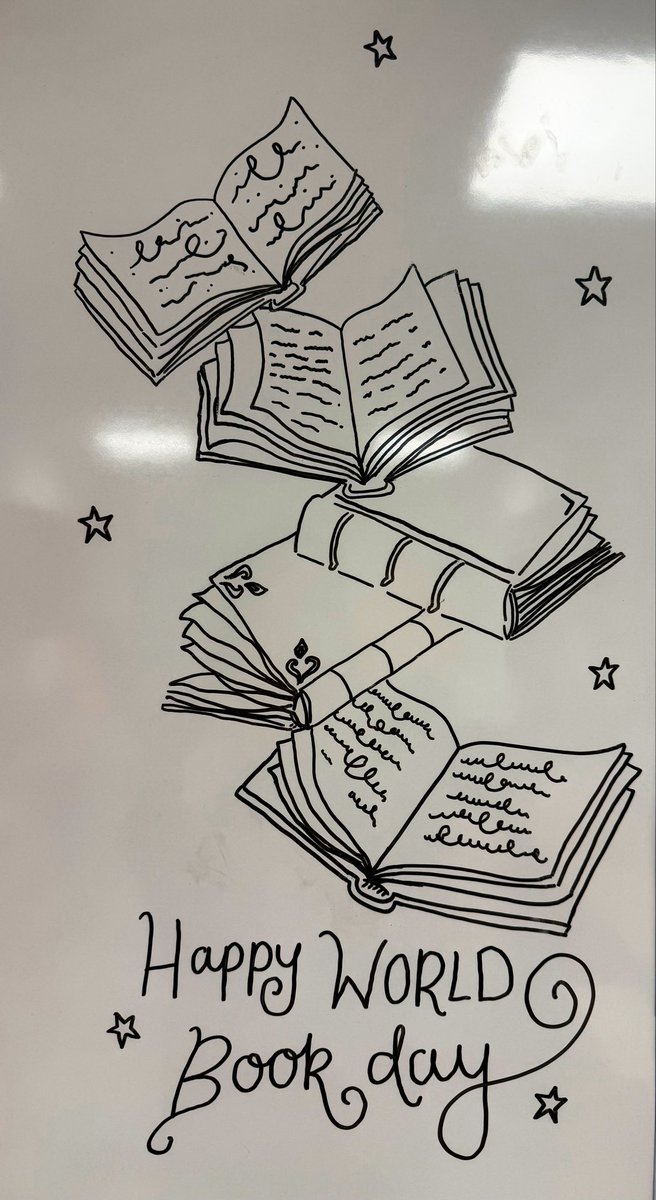 Happy WORLD
Book day